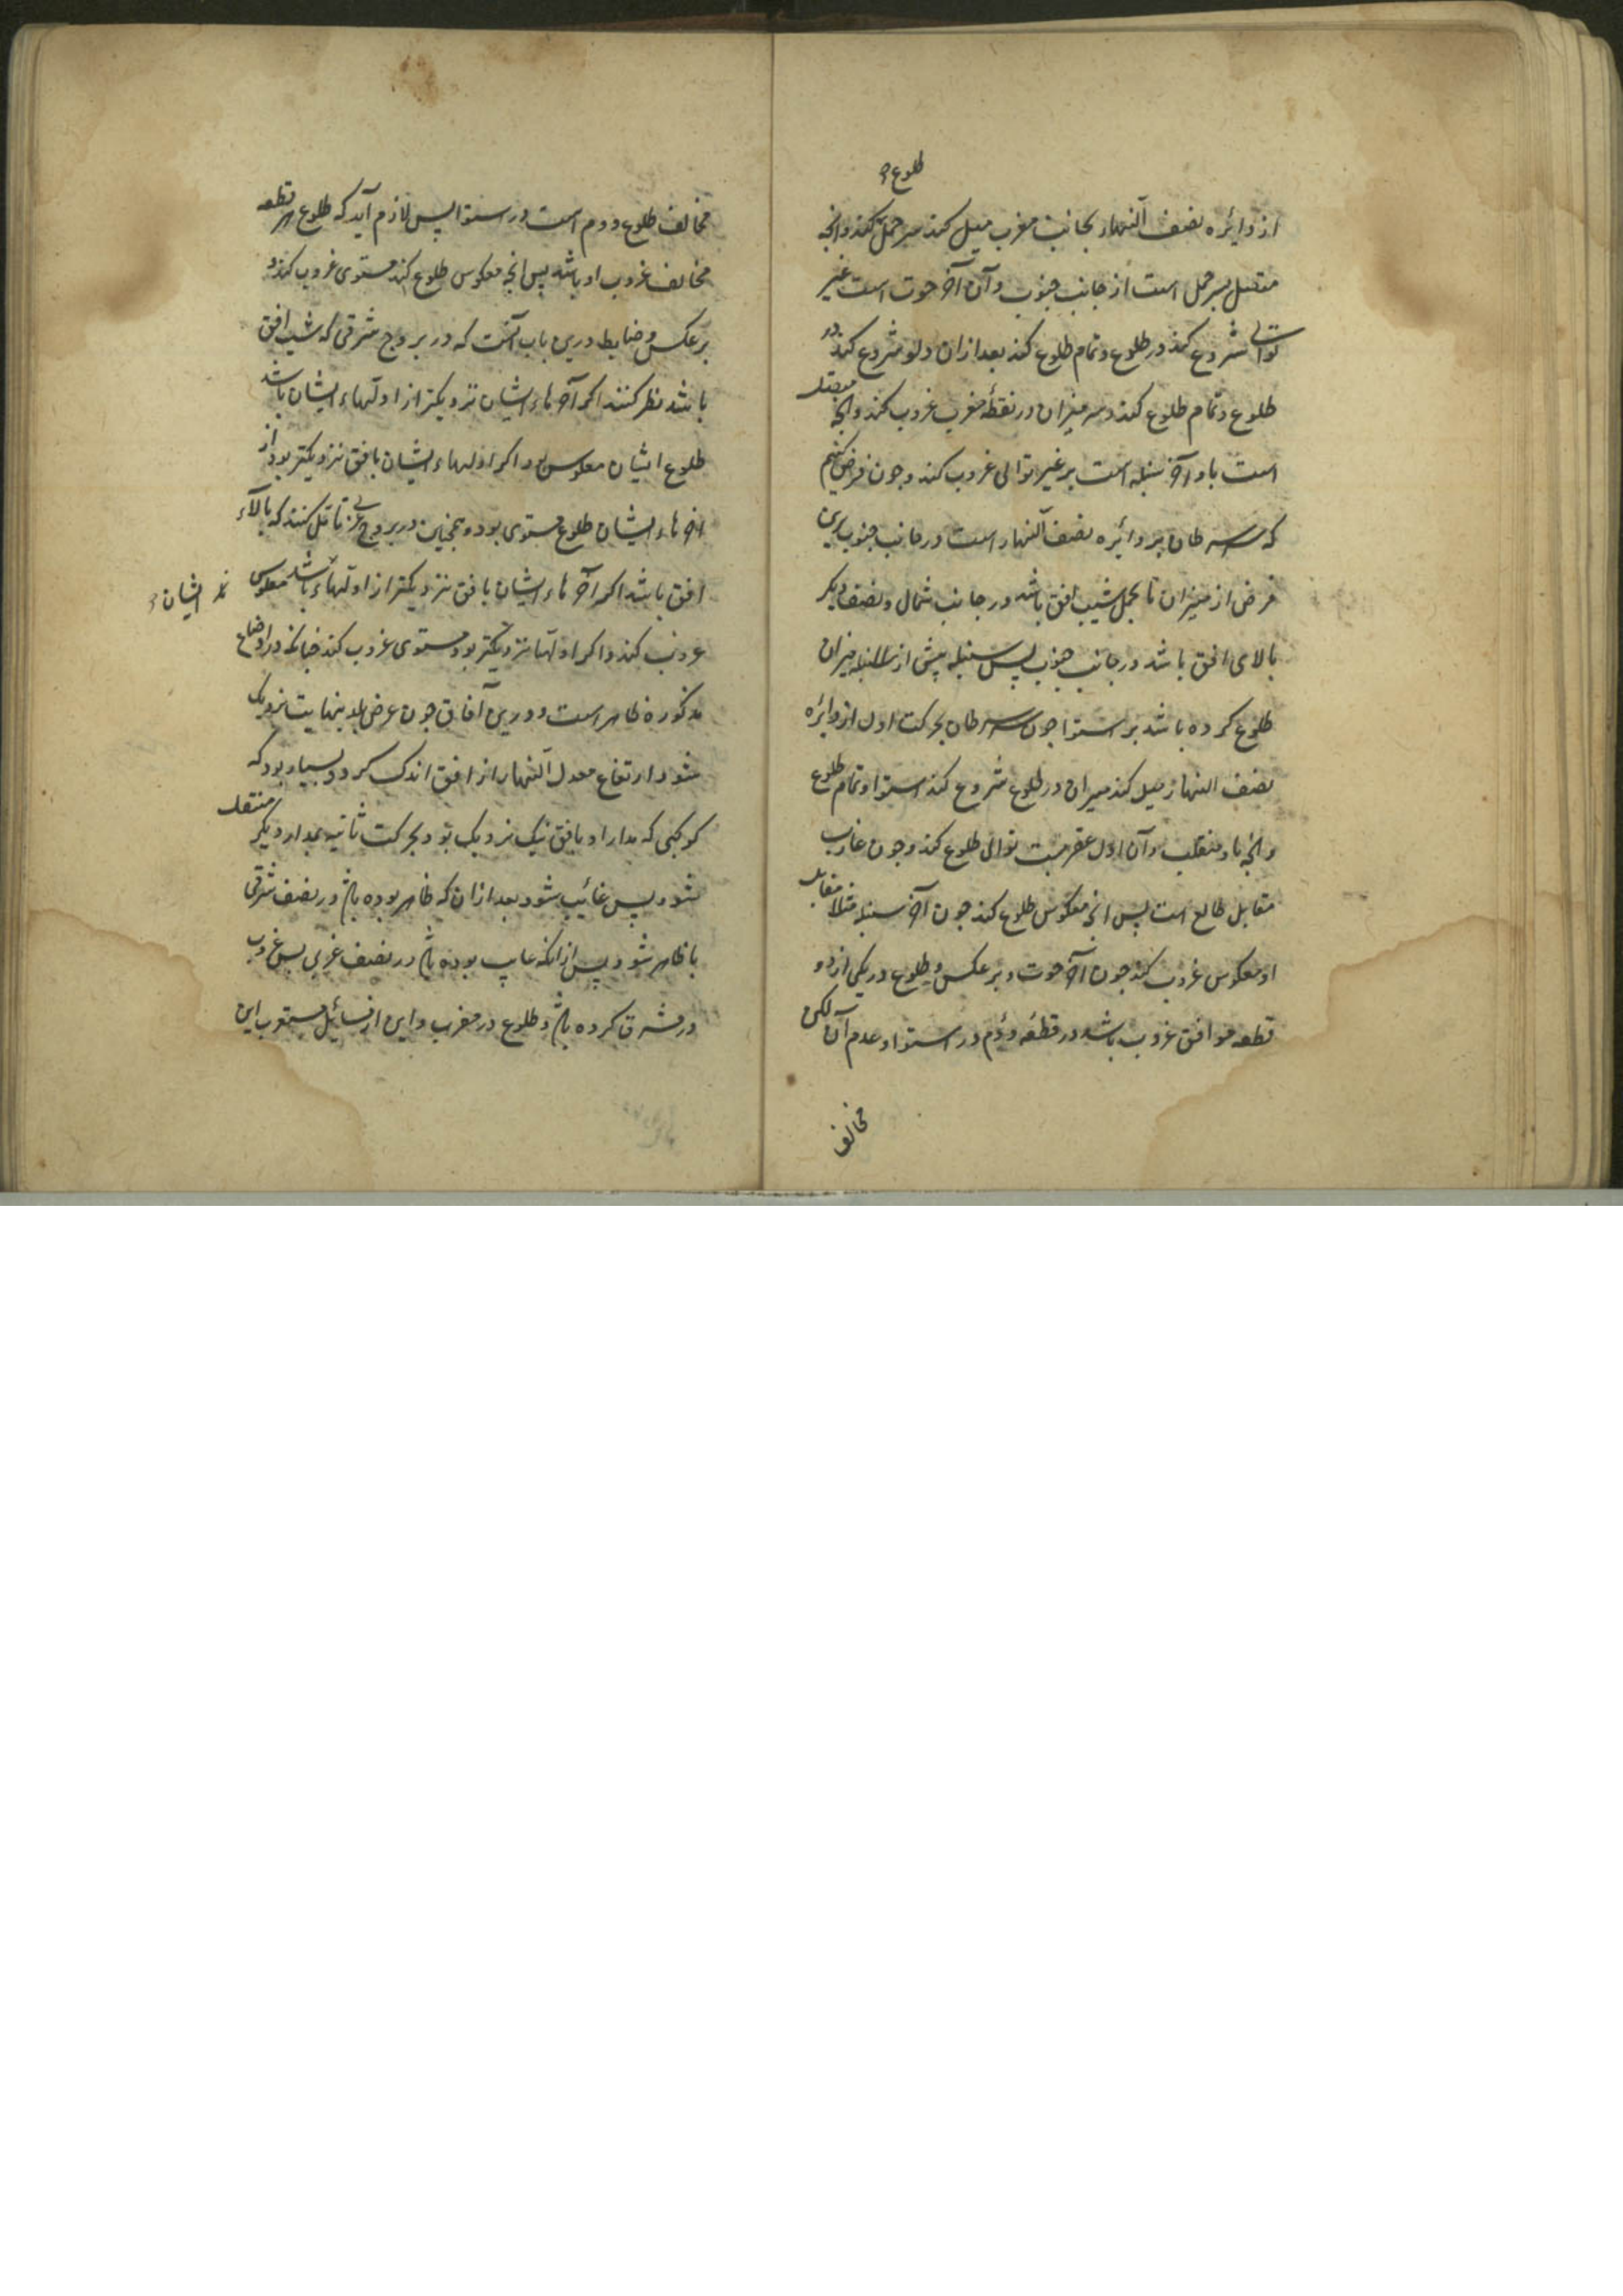 طلوع
از دایره نصف النهار بجانب مغرب میل کند سر حمل کند و انچه
متصل بسر حمل است از جانب جنوب و آن آخر حوت است غیر
توالی شروع کند در طلوع و تمام طلوع کند بعد ازان دلو شروع کند در
طلوع و تمام طلوع کند و سر میزان در نقطهٔ مغرب غروب کند و انچه متصل
است باو آخر سنبله است بر غیر توالی غروب کند و چون فرض کنیم
که سرطان بر دائره نصف النهار است در جانب جنوب برین
فرض از میزان تا بحمل شیب افق باشد در جانب شمال و نصف دیگر
بالای افق باشد در جانب جنوب پس سنبله پیش از میزان
طلوع کرده باشد بر استوا چون سرطان بحرکت اول از دایره
نصف النهار میل کند میزان در طلوع شروع کند استوا و تمام طلوع
و انچه باو و آن اول عقربست توالی طلوع کند و چون غارب
مقابل طالع است پس انچه معکوس طلوع کند چون آخر سنبله مثلا مقابل
او معکوس غروب کند چون آخر حوت و بر عکس و طلوع در یکی از دو
قطعه موافق غروب باشد در قطعه دوم در استوا و عدم آن لکن
مخالف
مخالف طلوع دوم است در استوا پس لازم آید که طلوع هر قطعه
مخالف غروب او باشد پس انچه معکوس طلوع کند مستوی غروب کند و
بر عکس و ضابط درین باب آنست که در بروج شرقی که شیب افق
باشد نظر کنند اکر آخرهاء ایشان نزدیکتر از اولهاء ایشان باشد
طلوع ایشان معکوس بود اکر اولهاء ایشان بافق نزدیکتر بود از
آخرهاء ایشان طلوع مستوی بود و همچنین در بروج غربی تامل کنند که بالاء
افق باشد اکر آخرهاء ایشان بافق نزدیکتر از اولهاء باشد معکوس
ایشان
غروب کند و اکر اولها نزدیکتر بود مستوی غروب کند چنانکه در اوضاع
مذکوره ظاهر است و درین آفاق چون عرض بلد بنهایت نزدیک
شود ارتفاع معدل النهار از افق اندک کردد و بسیار بود که
کوکبی که مدار او بافق نیک نزدیک بود و بحرکت ثانیه بمدار دیکر منتقل
شود و پس غائب شود بعد ازان که ظاهر بوده باشد در نصف شرقی
یا ظاهر شود پس ازانکه غایب بوده باشد در نصف غربی پس غروب
در مشرق کرده باشد و طلوع در مغرب و این از مسائل مستغرب این